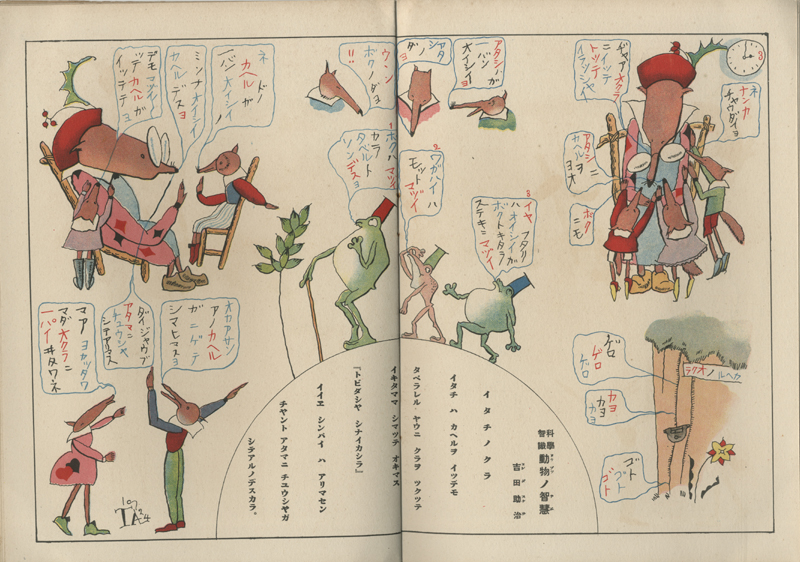 ヂャア オクラ
ニイッテ
トッテ
イラッシャイ
3
ネ
ナンカ
チャウダイヨ
アタシニ
カヘルヲ
ヨオ
ボク
ニモ
アタシノガ
一バン
大イシイ
ウン
ボクノダヨ
!!
ネ ドノ
カヘル ガ
一バン 大イシイ
ミンナオイシイ
カヘル デスヨ
デモ マヅイ
ッテ カヘルガ
イッテテヨ
1. ボクハ マヅイ
カラ
タベルト
ソンデスヨ
2. ワガハイハ
モット マヅイ
3 イヤ フタリ
ハオイシイガ
ボクトキタラ
ステキニ マヅイ
オカアサン
アノ カヘル
ガ ニゲテ
シマヒマスヨ
ダイジャウブ
アタマニ
チュウシャ
シテアリマス
マア ヨカッタワ
マダ オクラニ
一パイ
ヰタワネ
ゲロ
ゲロ
ゲロ
カヘルノオクラ
カヨ
カヨ
カヨ
ゴト
ゴト
ゴト
科學智識 動物ノ智慧
吉田助治
イタチノクラ
イタチ ハ カヘルヲ イツデモ
タベラレル ヤウニ クラヲ ツクツテ
イキタママ シマツテ オキマス
『トビダシヤ シナイカシラ』
イイヱ シンパイ ハ アリマセン
チヤント アタマニ チユウシヤガ
シテアルノデスカラ。